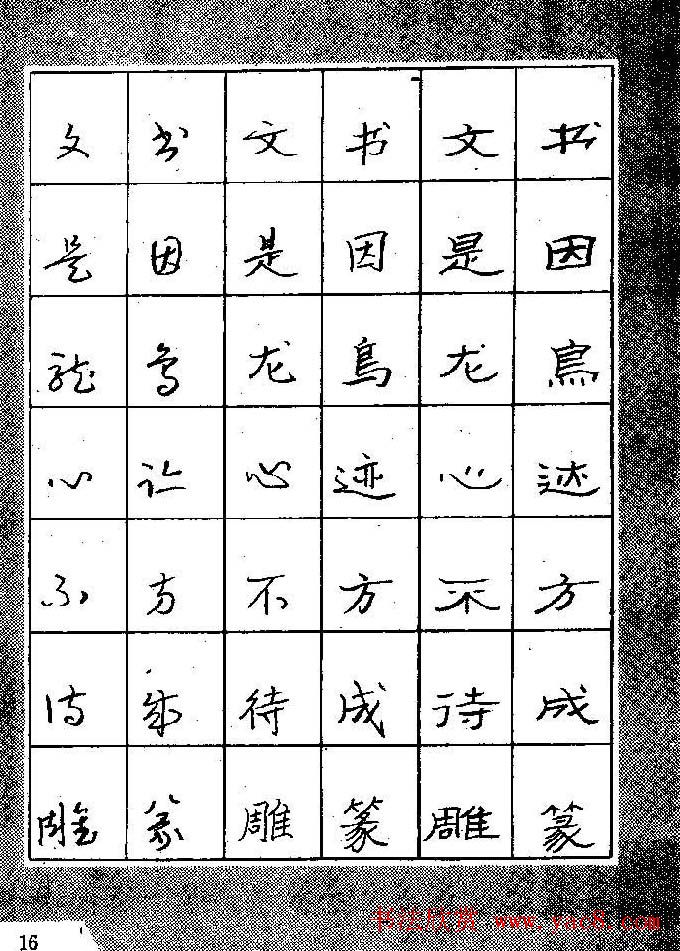 书因鳥迹方成篆
文是龙心不待雕
书因鳥迹方成篆
文是龙心不待雕
书因鸟迹方成篆
文是龍心不待雕
16
书法欣赏 www.yac8.com